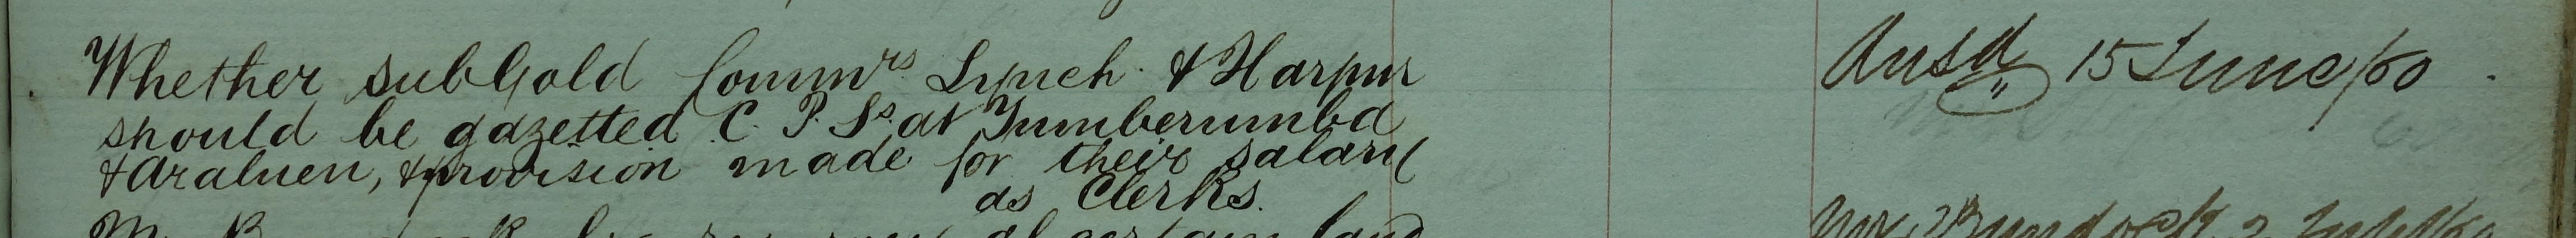 Whether sub Gold Commrs Lynch & Harpur
should be gazetted C. P. Ss. at Tumberumba
& Araluen, & provision made for their salary
as Clerks.
Ansd 15 June/60